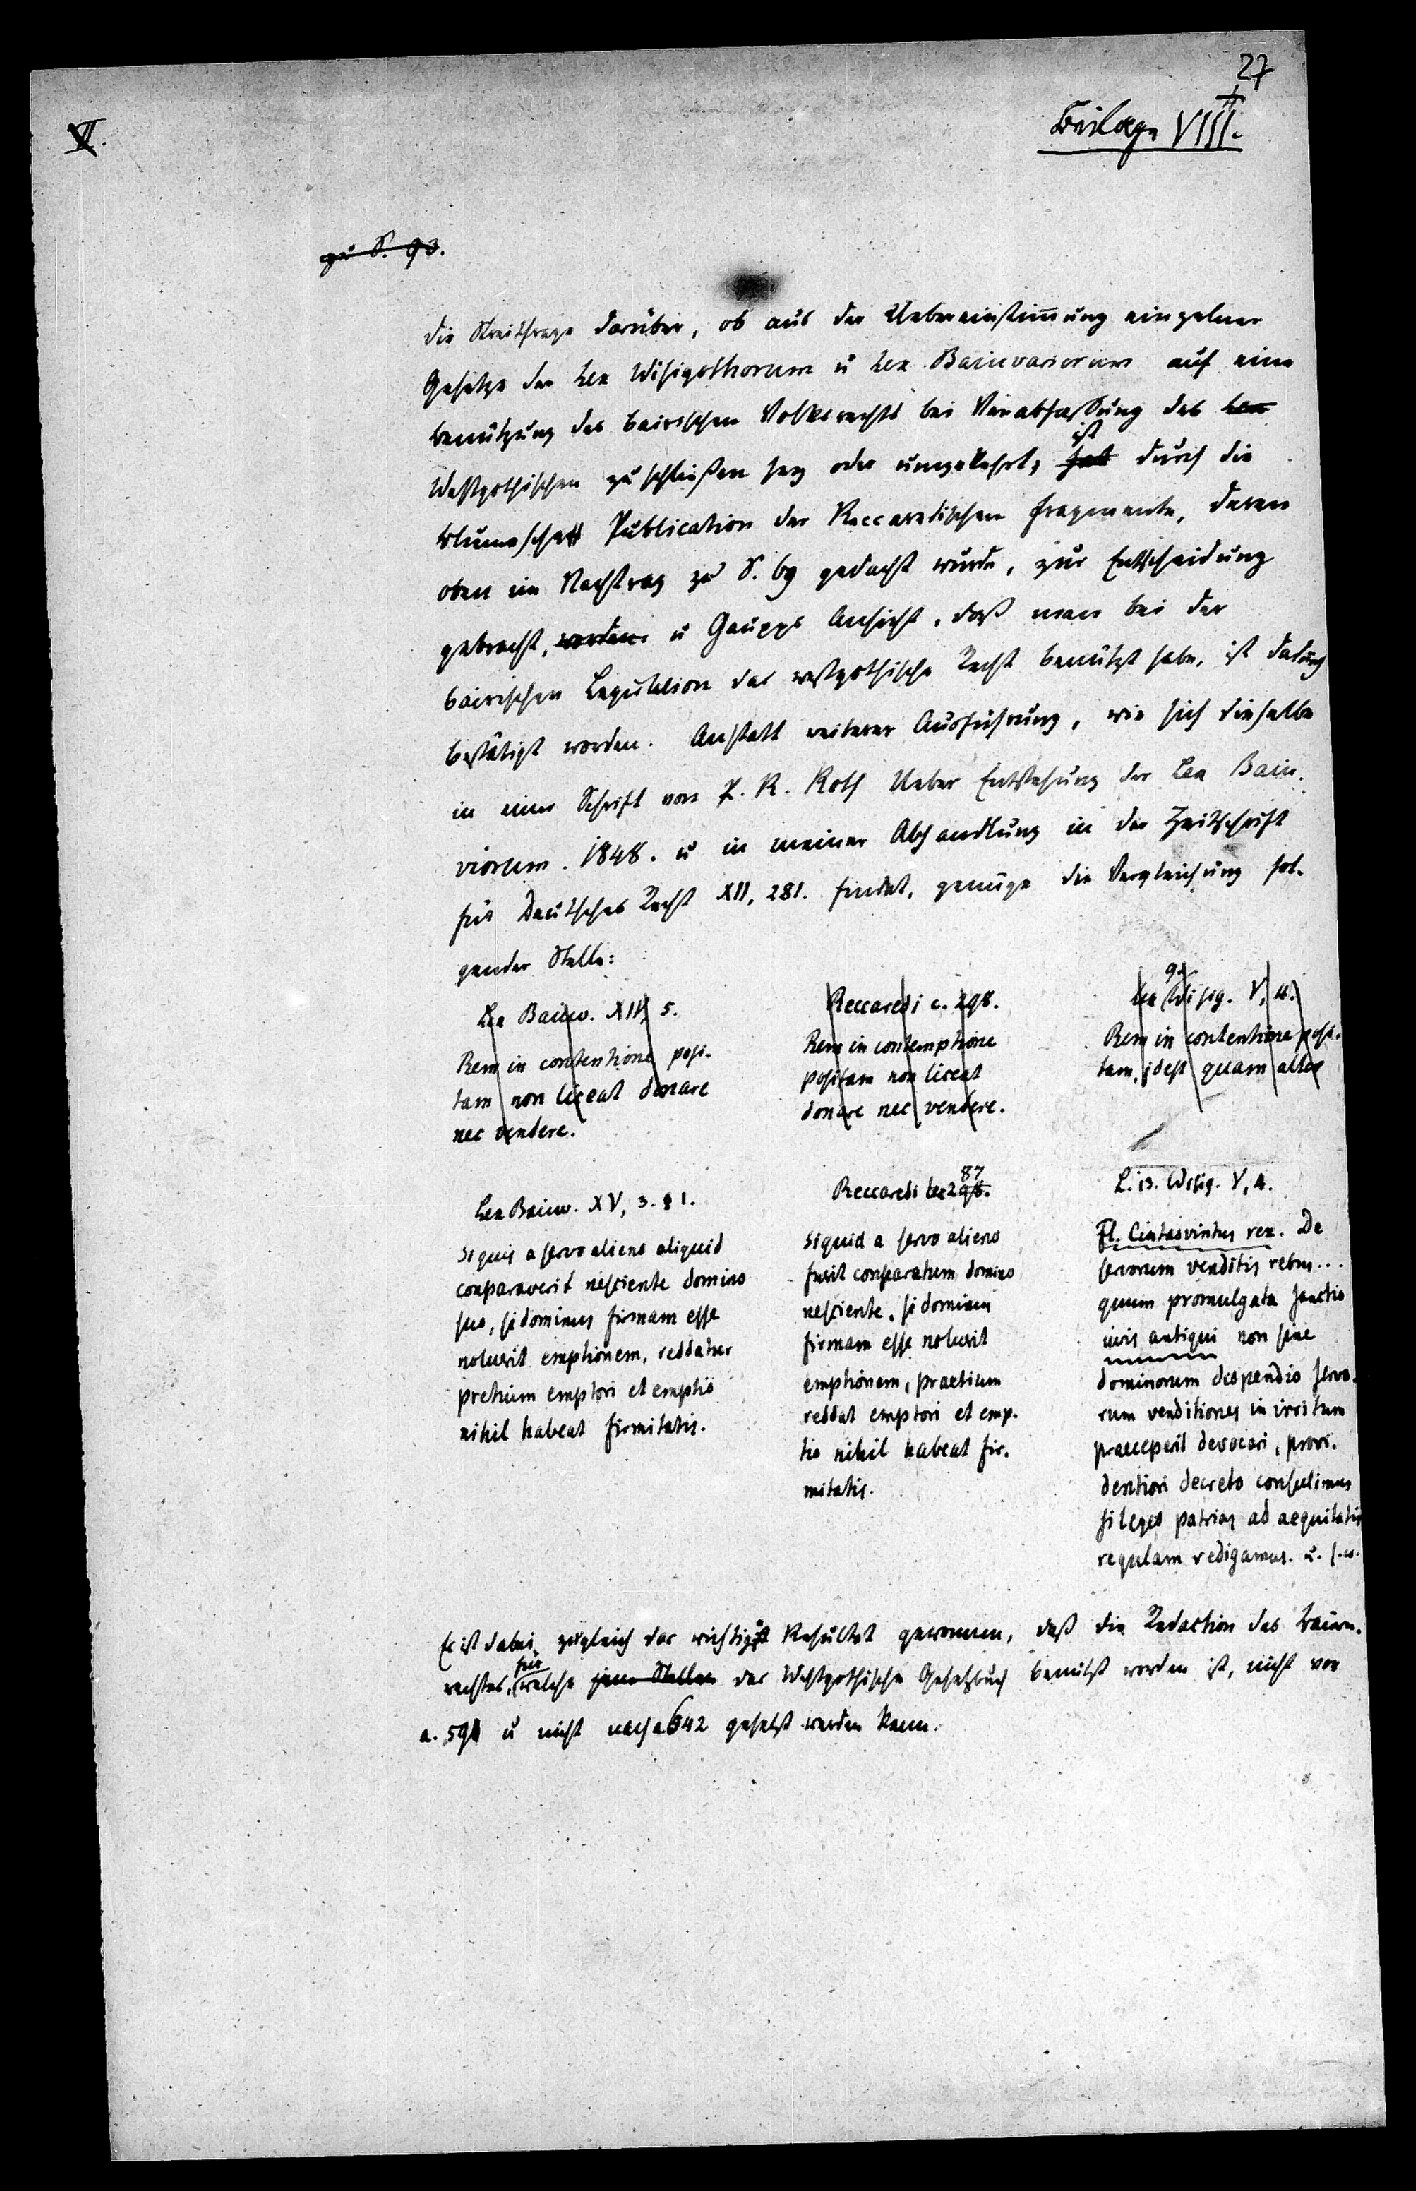 27
VI.
Beilage VIII.
zu S. 93.
Die Streitfrage darüber, ob aus der Uebereinstimmung einzelner
Gesetze der Lex Wisigothorum u Lex Baiuvariorum auf eine
Benützung des bairischen Volksrechts bei Verabfassung des Lex
ist
Westgothischen zu schließen sey oder umgekehrt, hat durch die
Bluhmesche Publication der Reccaredischen Fragmente, deren
oben im Nachtrag zu S. 69 gedacht wurde, zur Entscheidung
gebracht, worden u Gaupps Ansicht, daß man bei der
bairischen Legislation das westgothische Recht benützt habe, ist dadurch
bestätigt worden. Anstatt weiterer Ausführung, wie sich dieselbe
in einer Schrift von P. R. Roth Ueber Entstehung der Lex Baiu-
viorum. 1848. u in meiner Abhandlung in der Zeitschrift
für Deutsches Recht XII, 281. findet, genüge die Vergleichung fol-
gender Stelle:
Lex Baiuv. XIV, 5.
Rem in contentione posi-
tam non liceat donare
nec vendere.
Reccaredi c. 298.
Rem in contemptione
positam non liceat
donare nec vendere.
9.
Lex Wisig. V, 4.
Rem in contentione posi-
tam, idest quam alter
Lex Baiuv. XV, 3. § 1.
Siquis a servo alieno aliquid
conparaverit nesciente domino
suo, si dominus firmam esse
noluerit emptionem, reddatur
pretium emptori et emptio
nihil habeat firmitatis.
87
Reccaredi lex 298.
Siquid a servo alieno
fuerit conparatum domino
nesciente, si dominus
firmam esse noluerit
emptionem, praetium
reddat emptori et emp-
tio nihil habeat fir-
mitatis.
L. 13. Wisig. V, 4.
Fl. Cintasvintus rex. De
servorum venditis rebus...
quum promulgata sanctio
iuris antiqui non sine
dominorum dispendio servo-
rum venditiones in irritum
praeceperit devocari, provi-
dentiori decreto consulimus
si leges patrias ad aequitatis
regulam redigamus. u. s. w.
Es ist dabei zugleich das wichtigst Resultat gewonnen, daß die Redaction des Baiern-
für
rechtes, welche jene Stellen das Westgothische Gesetzbuch benützt worden ist, nicht vor
a. 591 u nicht nach a 642 gesetzt werden kann.